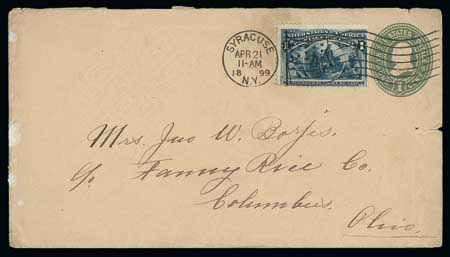 SYRACUSE
APR 21
11-AM
18 99
N.Y.
UNITED STATES OF AMERICA
Mrs. Jno W.
c/o Fanny Rice Co.
Columbus.
Ohio.